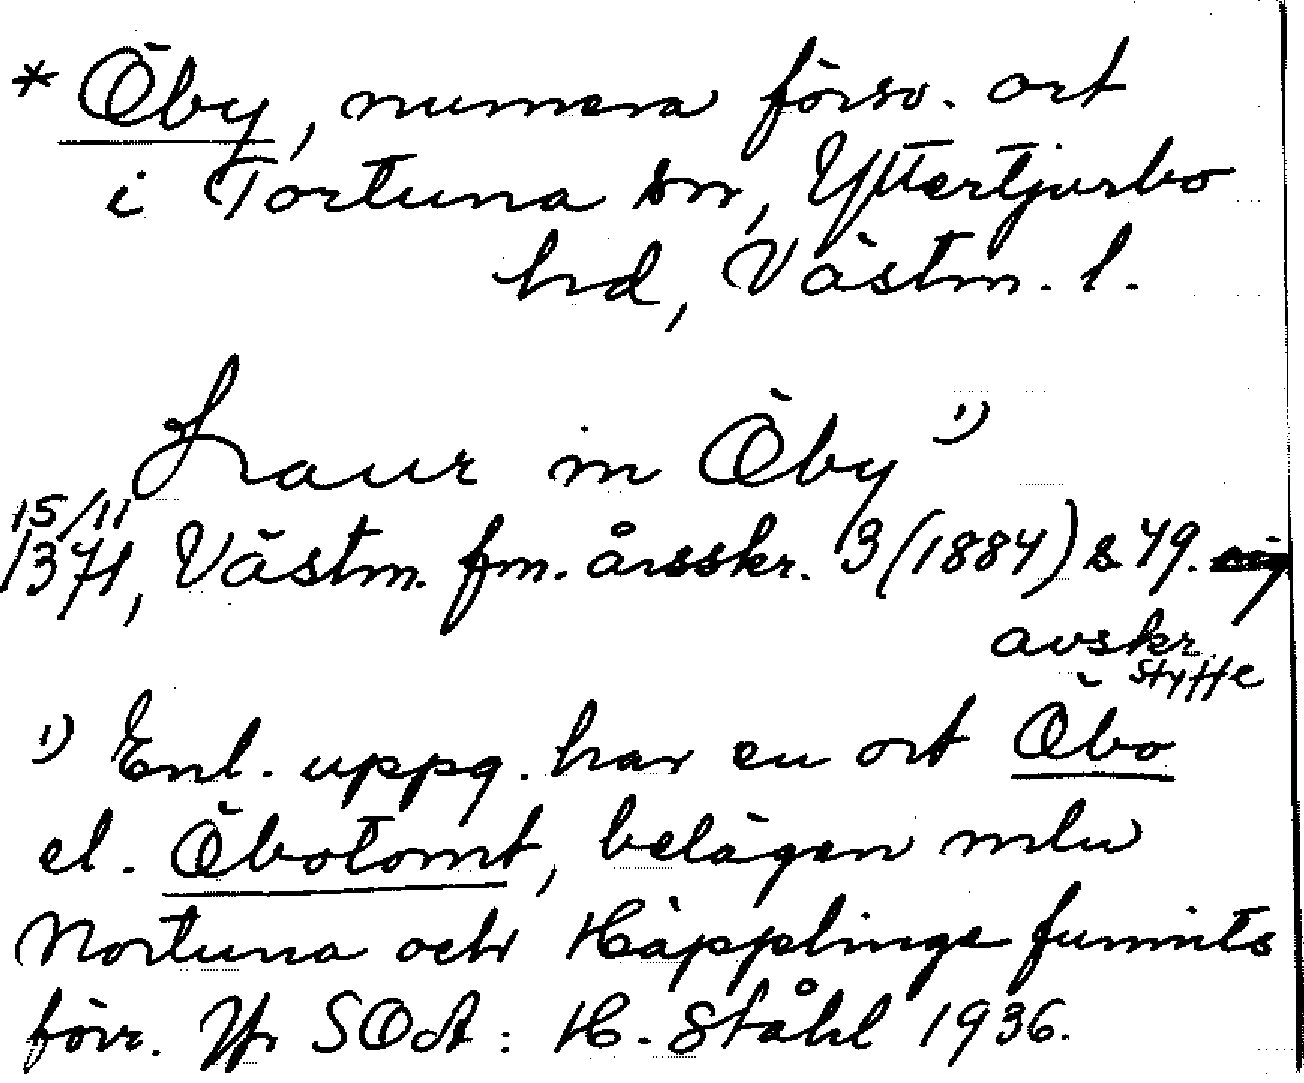 * Öby, numera försv. ort
i Tortuna sn, Yttertjurbo
hd, Västm. l.
Laur in Öby ¹⁾
15/11
1371, Västm. fm. årsskr. 3 (1884) s. 49.
avskr.
Styffe
¹⁾ Enl. uppg. har en ort Öbo
el. Öbotomt, belägen mln
Nortuna och Häpplinge funnits
förr. Jfr SOA: H. Ståhl 1936.